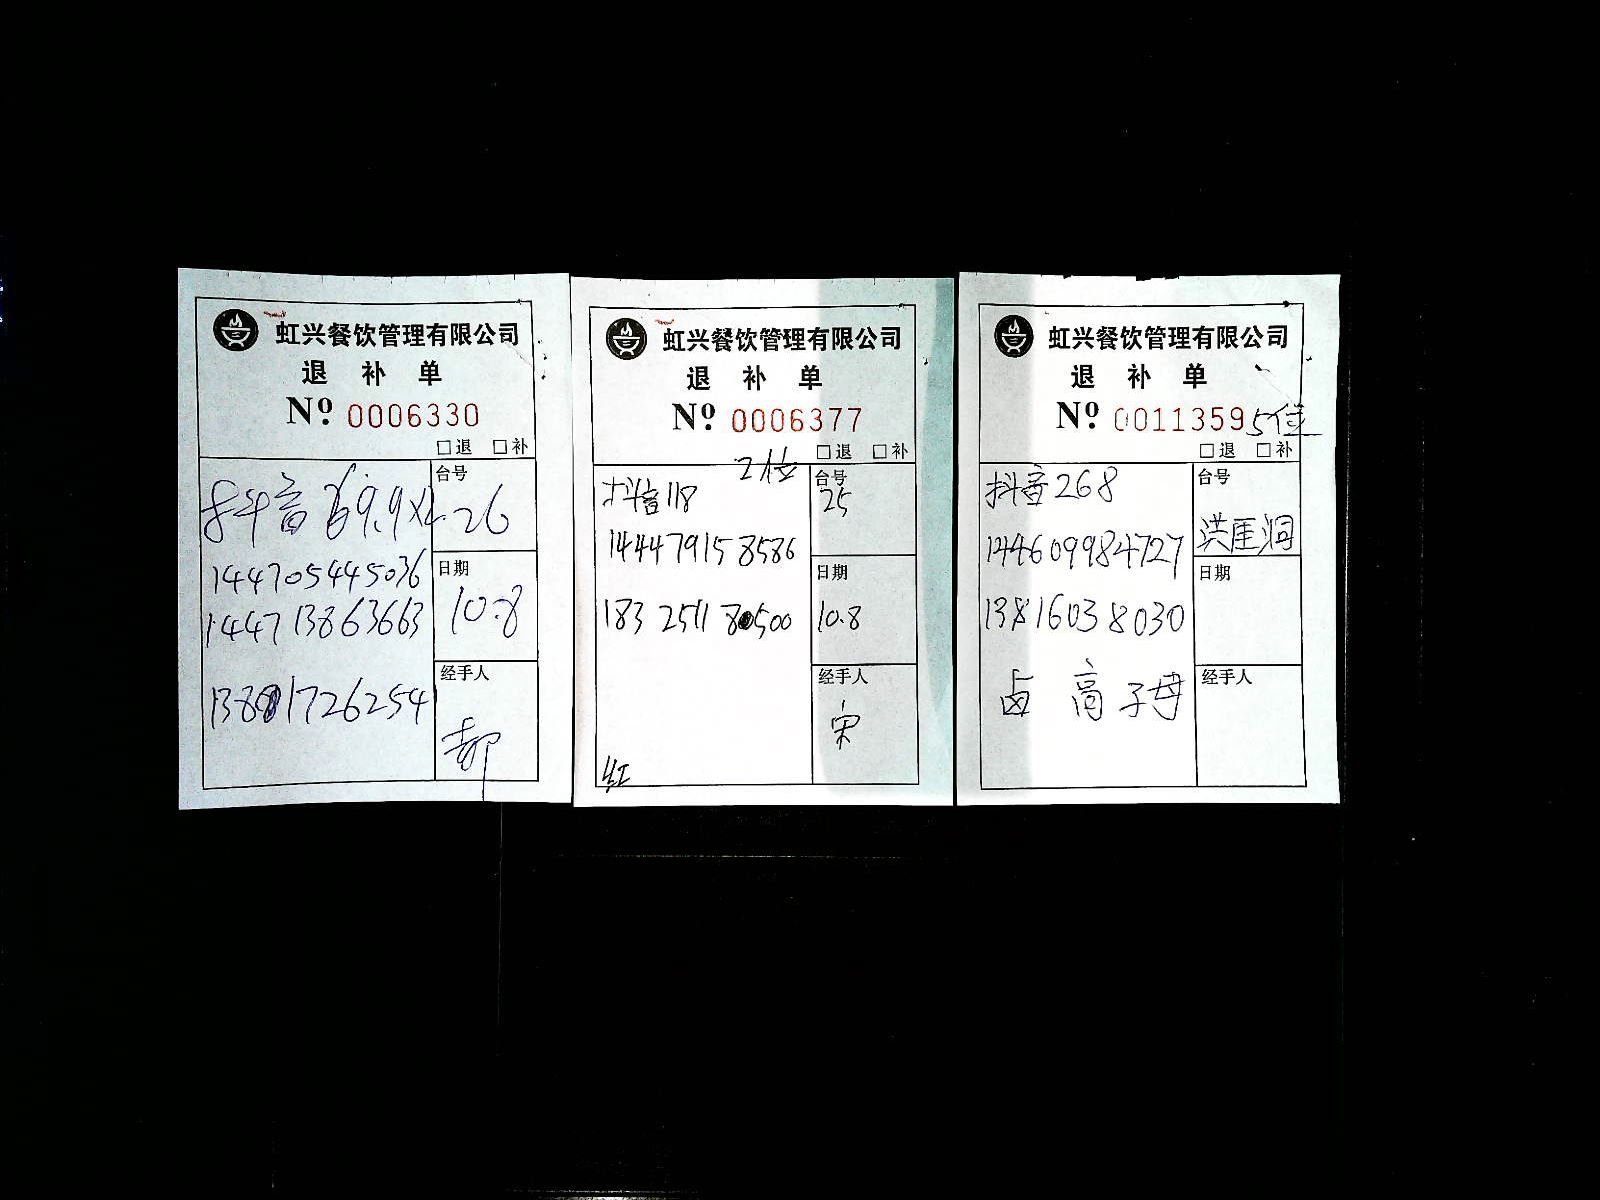 虹兴餐饮管理有限公司
退 补 单
Nº 0006330
□退 □补
抖音69.9x2
台号
26
144705445036
144713863663
日期
10.8
13801726254
经手人
郝
虹兴餐饮管理有限公司
退 补 单
Nº 0006377
2位
□退 □补
抖音118
台号
25
144479158586
日期
183251180500
10.8
经手人
宋
红
虹兴餐饮管理有限公司
退 补 单
Nº 0011359
5位
□退 □补
抖音268
台号
洪崖洞
144609984727
日期
13816038030
卤 高 子母
经手人